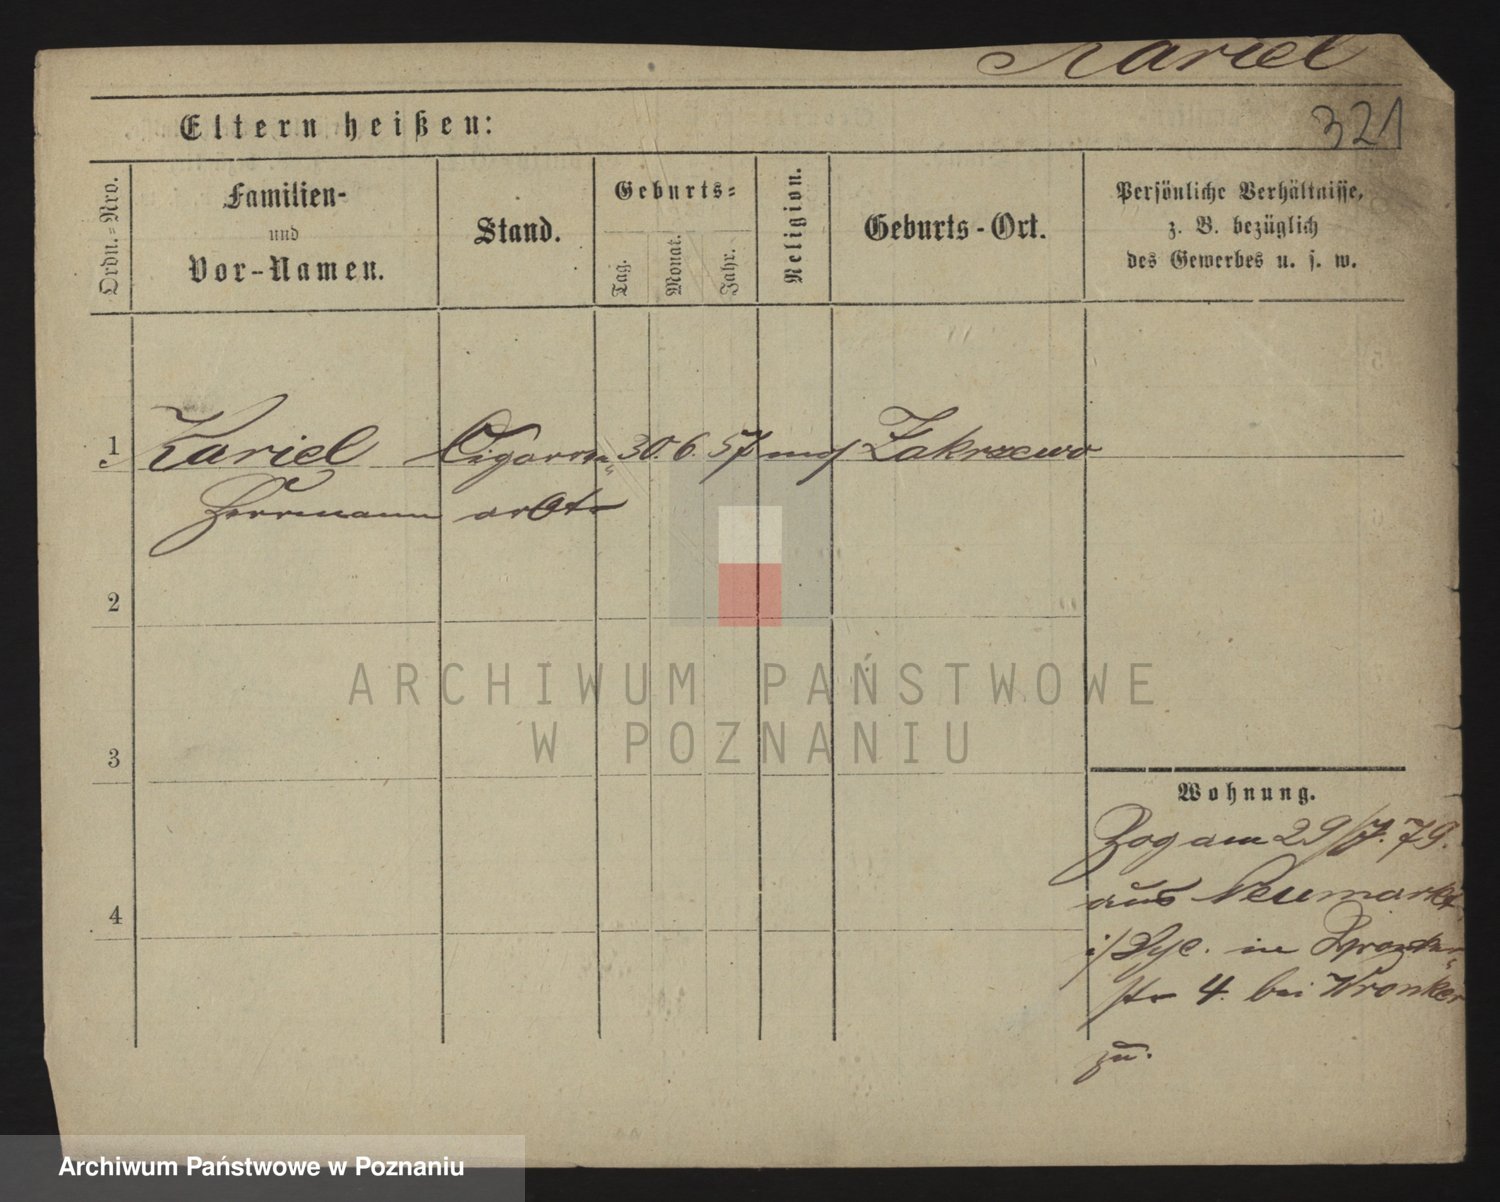 Kariel
321
Eltern heißen:
Ordn.=Nro.
Familien-
und
Vor-Namen.
Stand.
Geburts=
Tag.
Monat.
Jahr.
Religion.
Geburts-Ort.
Persönliche Verhältnisse,
z. B. bezüglich
des Gewerbes u. s. w.
1 Kariel Cigarren 30. 6. 57 Zakrzewo
Herrmann arbtr
2
3
4
Wohnung.
Zog am 29/7. 79.
aus Neumarkt
in
str 4. bei Wronker
zu.
ARCHIWUM PAŃSTWOWE
W POZNANIU
Archiwum Państwowe w Poznaniu